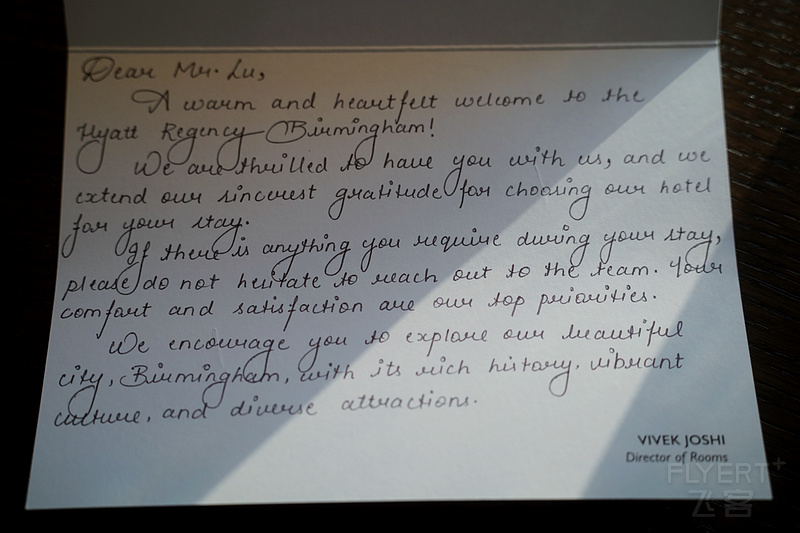 Dear Mr. Lu,
A warm and heartfelt welcome to the
Hyatt Regency Birmingham!
We are thrilled to have you with us, and we
extend our sincerest gratitude for choosing our hotel
for your stay.
If there is anything you require during your stay,
please do not hesitate to reach out to the team. Your
comfort and satisfaction are our top priorities.
We encourage you to explore our beautiful
city, Birmingham, with its rich history, vibrant
culture, and diverse attractions.
VIVEK JOSHI
Director of Rooms
FLYERT+
飞客